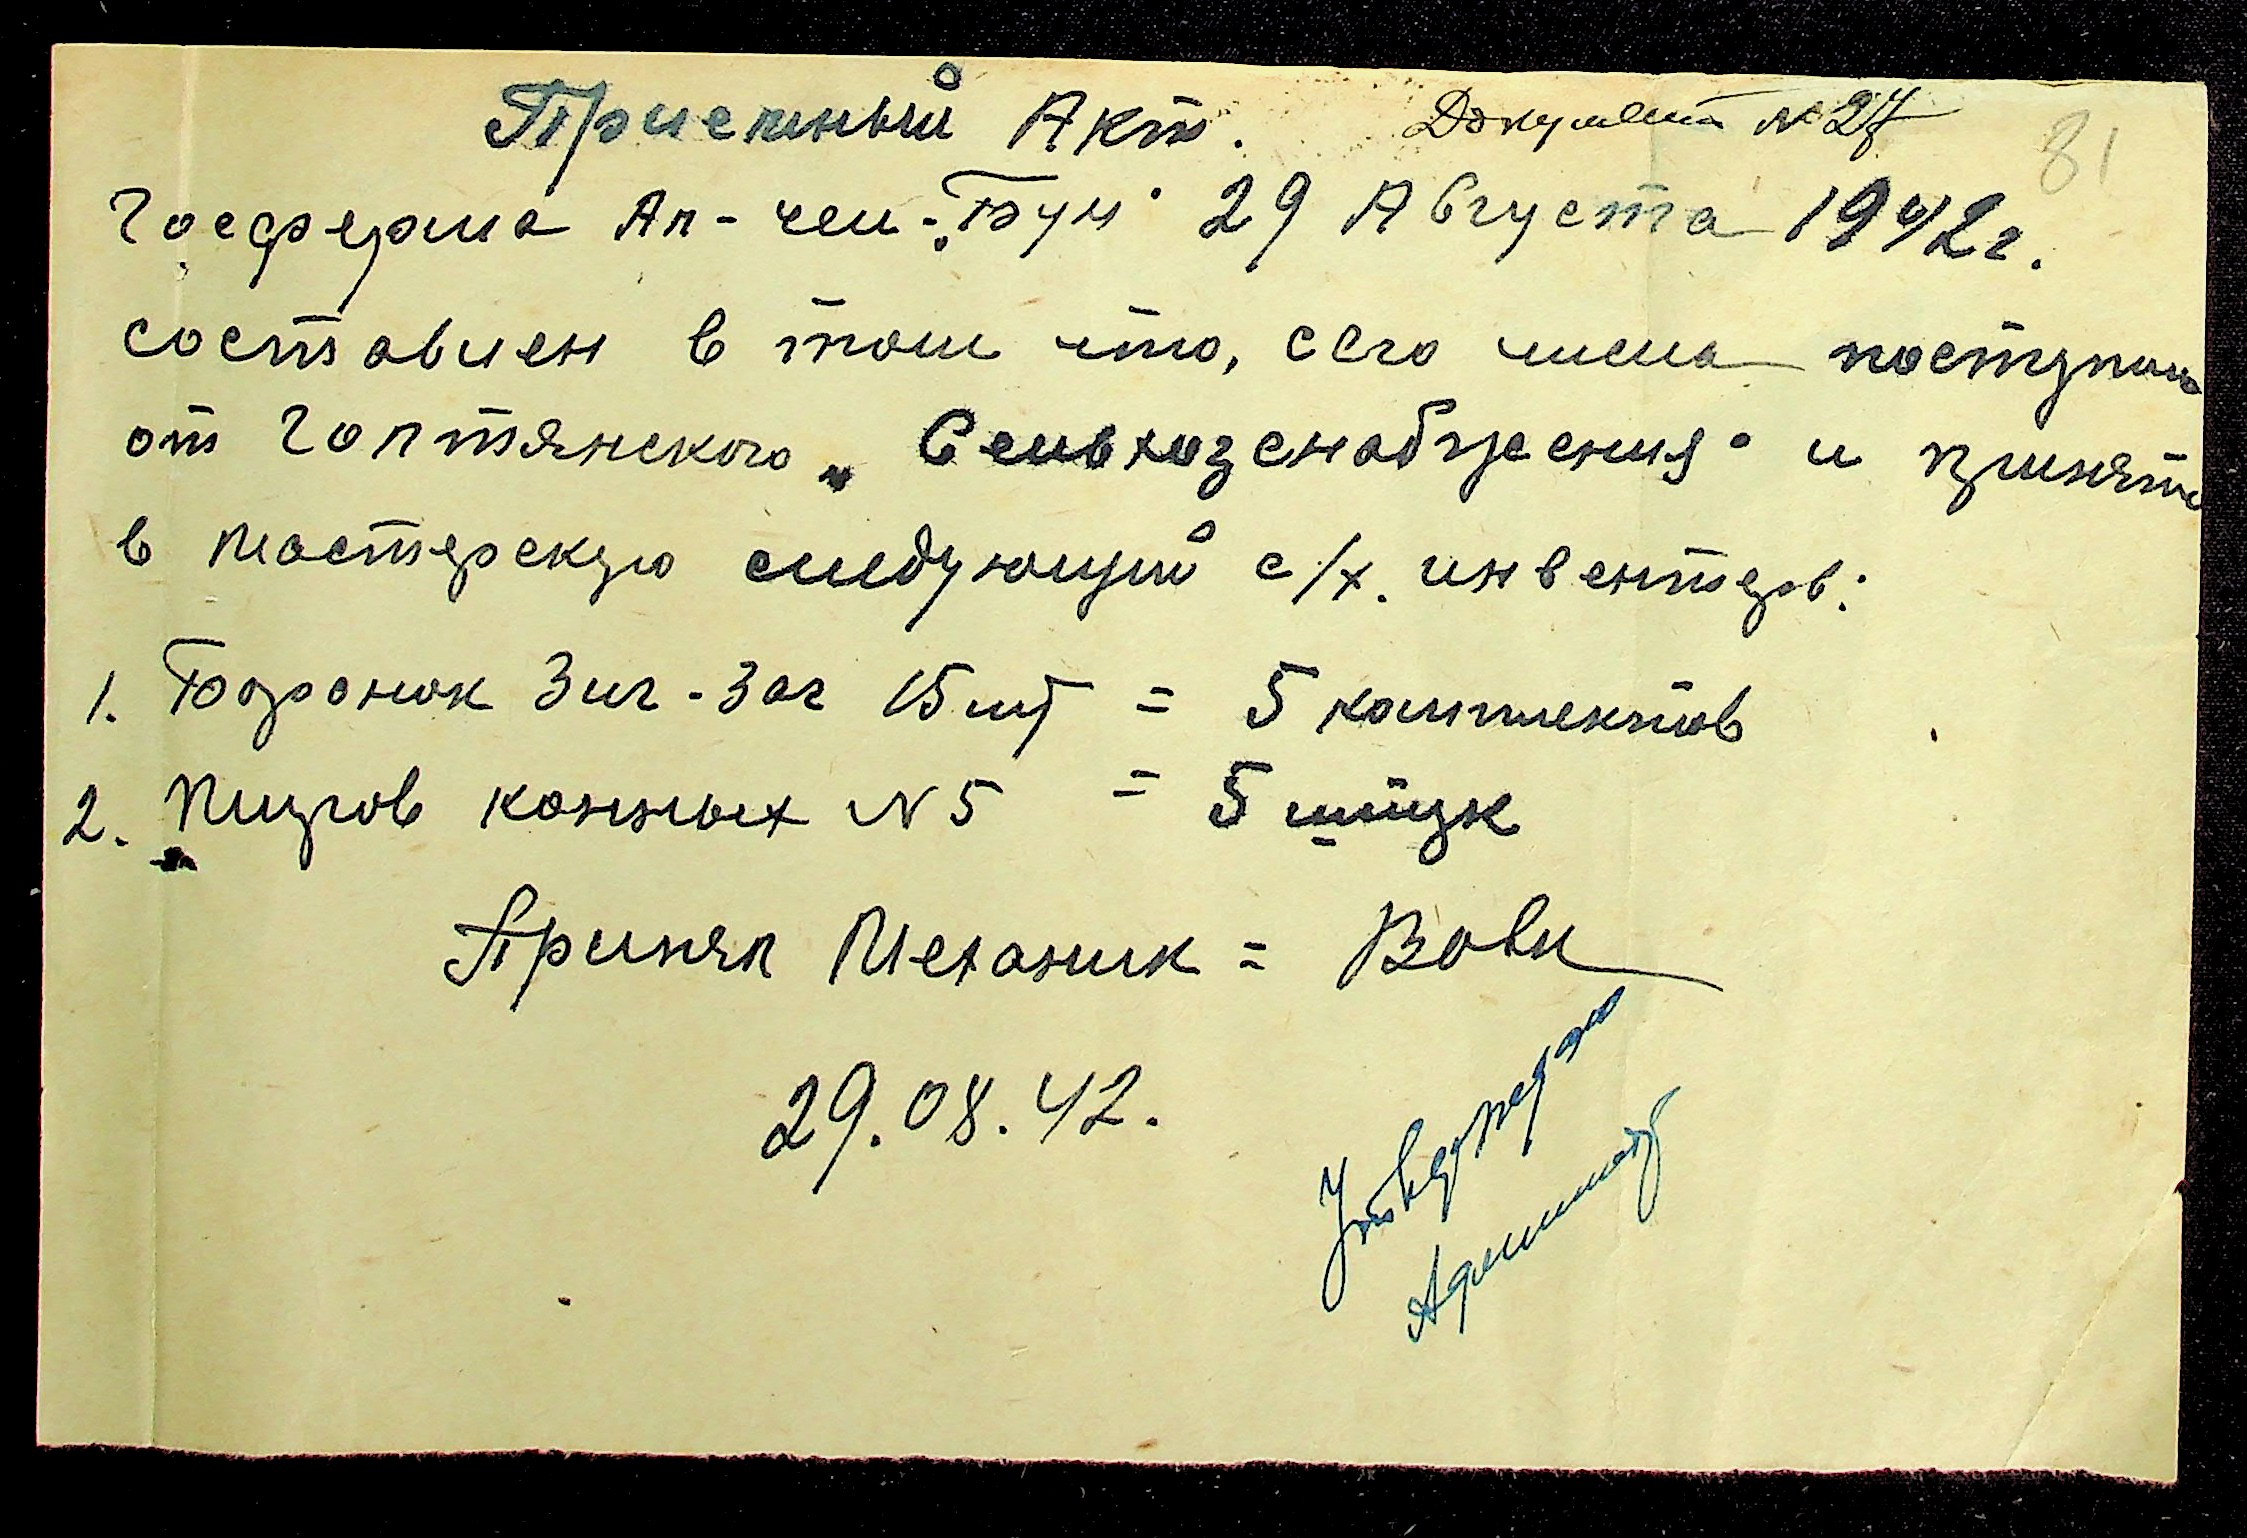 Приемный Акт. Документ № 27
81
Госферма Ап-чел-"Бум" 29 Августа 1942г.
составлен в том что, сего числа поступило
от Голтянского "Сельхозснабжения" и принято
в мастерскую следующий с/х. инвентарь:
1. Боронок Зиг-Заг 15 шт = 5 комплектов
2. Плугов конных №5 = 5 штук
Принял Механик = Вовк
29.08.42.
Утверждаю